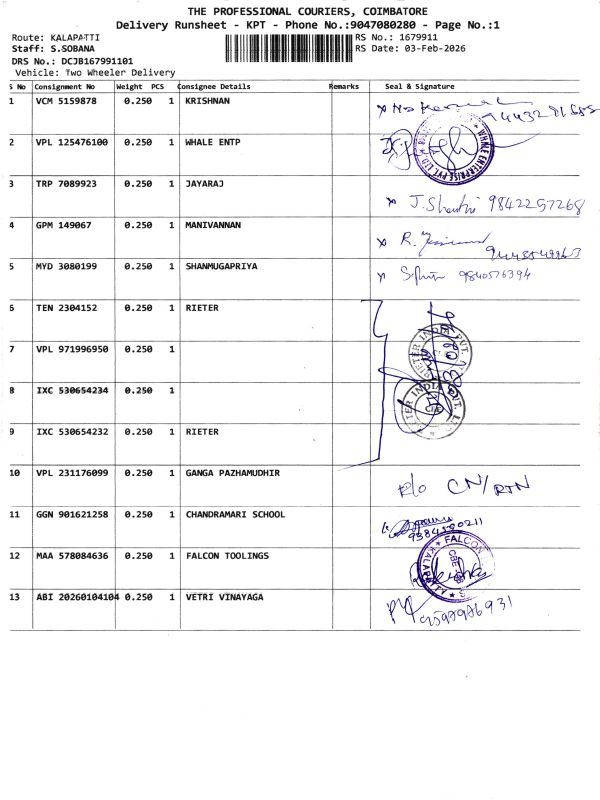 THE PROFESSIONAL COURIERS, COIMBATORE
Delivery Runsheet - KPT - Phone No.:9047080280 - Page No.:1
Route: KALAPATTI
RS No.: 1679911
Staff: S.SOBANA
RS Date: 03-Feb-2026
DRS No.: DCJB167991101
Vehicle: Two Wheeler Delivery
S No Consignment No Weight PCS Consignee Details Remarks Seal & Signature
1 VCM 5159878 0.250 1 KRISHNAN
2 VPL 125476100 0.250 1 WHALE ENTP
WHALE ENTERPRISE PVT. LTD
3 TRP 7089923 0.250 1 JAYARAJ
J. Shanthi 9842257268
4 GPM 149067 0.250 1 MANIVANNAN
R.
5 MYD 3080199 0.250 1 SHANMUGAPRIYA
9840576394
6 TEN 2304152 0.250 1 RIETER
7 VPL 971996950 0.250 1
RIETER INDIA PVT.
8 IXC 530654234 0.250 1
RIETER INDIA PVT. LTD
9 IXC 530654232 0.250 1 RIETER
10 VPL 231176099 0.250 1 GANGA PAZHAMUDHIR
R/o CN/RTN
11 GGN 901621258 0.250 1 CHANDRAMARI SCHOOL
9384590211
12 MAA 578084636 0.250 1 FALCON TOOLINGS
FALCON
KALAPATTY
CBE
13 ABI 20260104104 0.250 1 VETRI VINAYAGA